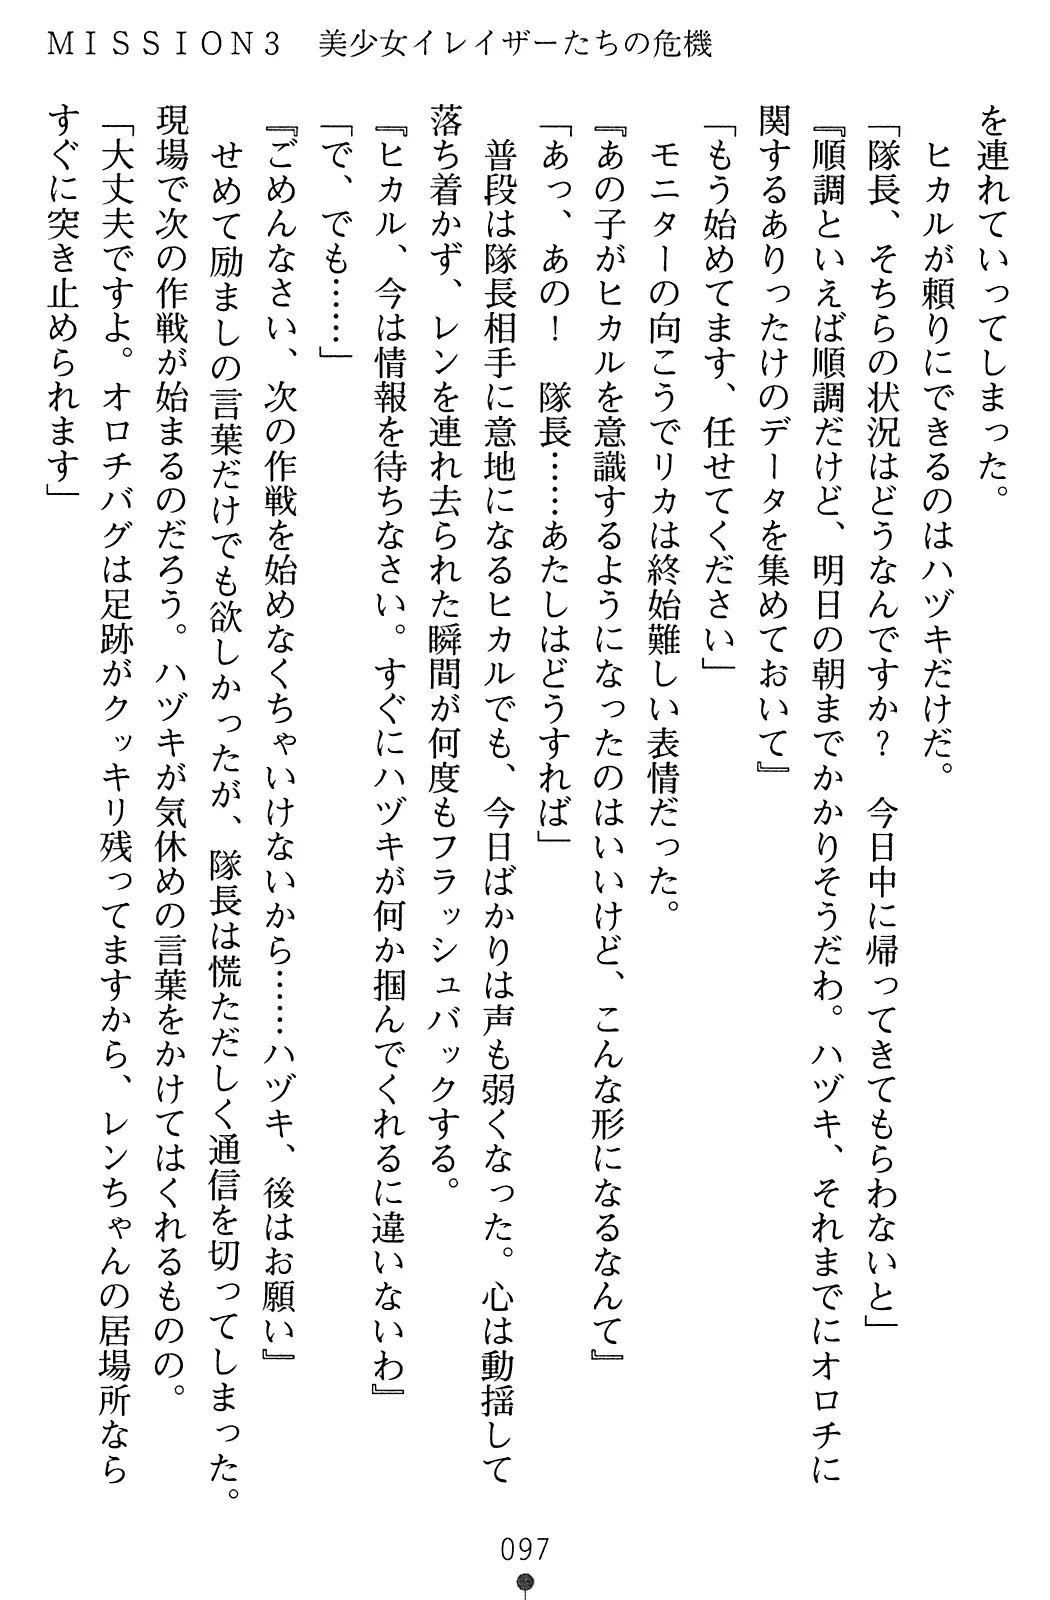 MISSION3　美少女イレイザーたちの危機
を連れていってしまった。
　ヒカルが頼りにできるのはハヅキだけだ。
「隊長、そちらの状況はどうなんですか？　今日中に帰ってきてもらわないと」
『順調といえば順調だけど、明日の朝までかかりそうだわ。ハヅキ、それまでにオロチに
関するありったけのデータを集めておいて』
「もう始めてます、任せてください」
　モニターの向こうでリカは終始難しい表情だった。
『あの子がヒカルを意識するようになったのはいいけど、こんな形になるなんて』
「あっ、あの！　隊長……あたしはどうすれば」
　普段は隊長相手に意地になるヒカルでも、今日ばかりは声も弱くなった。心は動揺して
落ち着かず、レンを連れ去られた瞬間が何度もフラッシュバックする。
『ヒカル、今は情報を待ちなさい。すぐにハヅキが何か掴んでくれるに違いないわ』
「で、でも……」
『ごめんなさい、次の作戦を始めなくちゃいけないから……ハヅキ、後はお願い』
　せめて励ましの言葉だけでも欲しかったが、隊長は慌ただしく通信を切ってしまった。
現場で次の作戦が始まるのだろう。ハヅキが気休めの言葉をかけてはくれるものの。
「大丈夫ですよ。オロチバグは足跡がクッキリ残ってますから、レンちゃんの居場所なら
すぐに突き止められます」
097